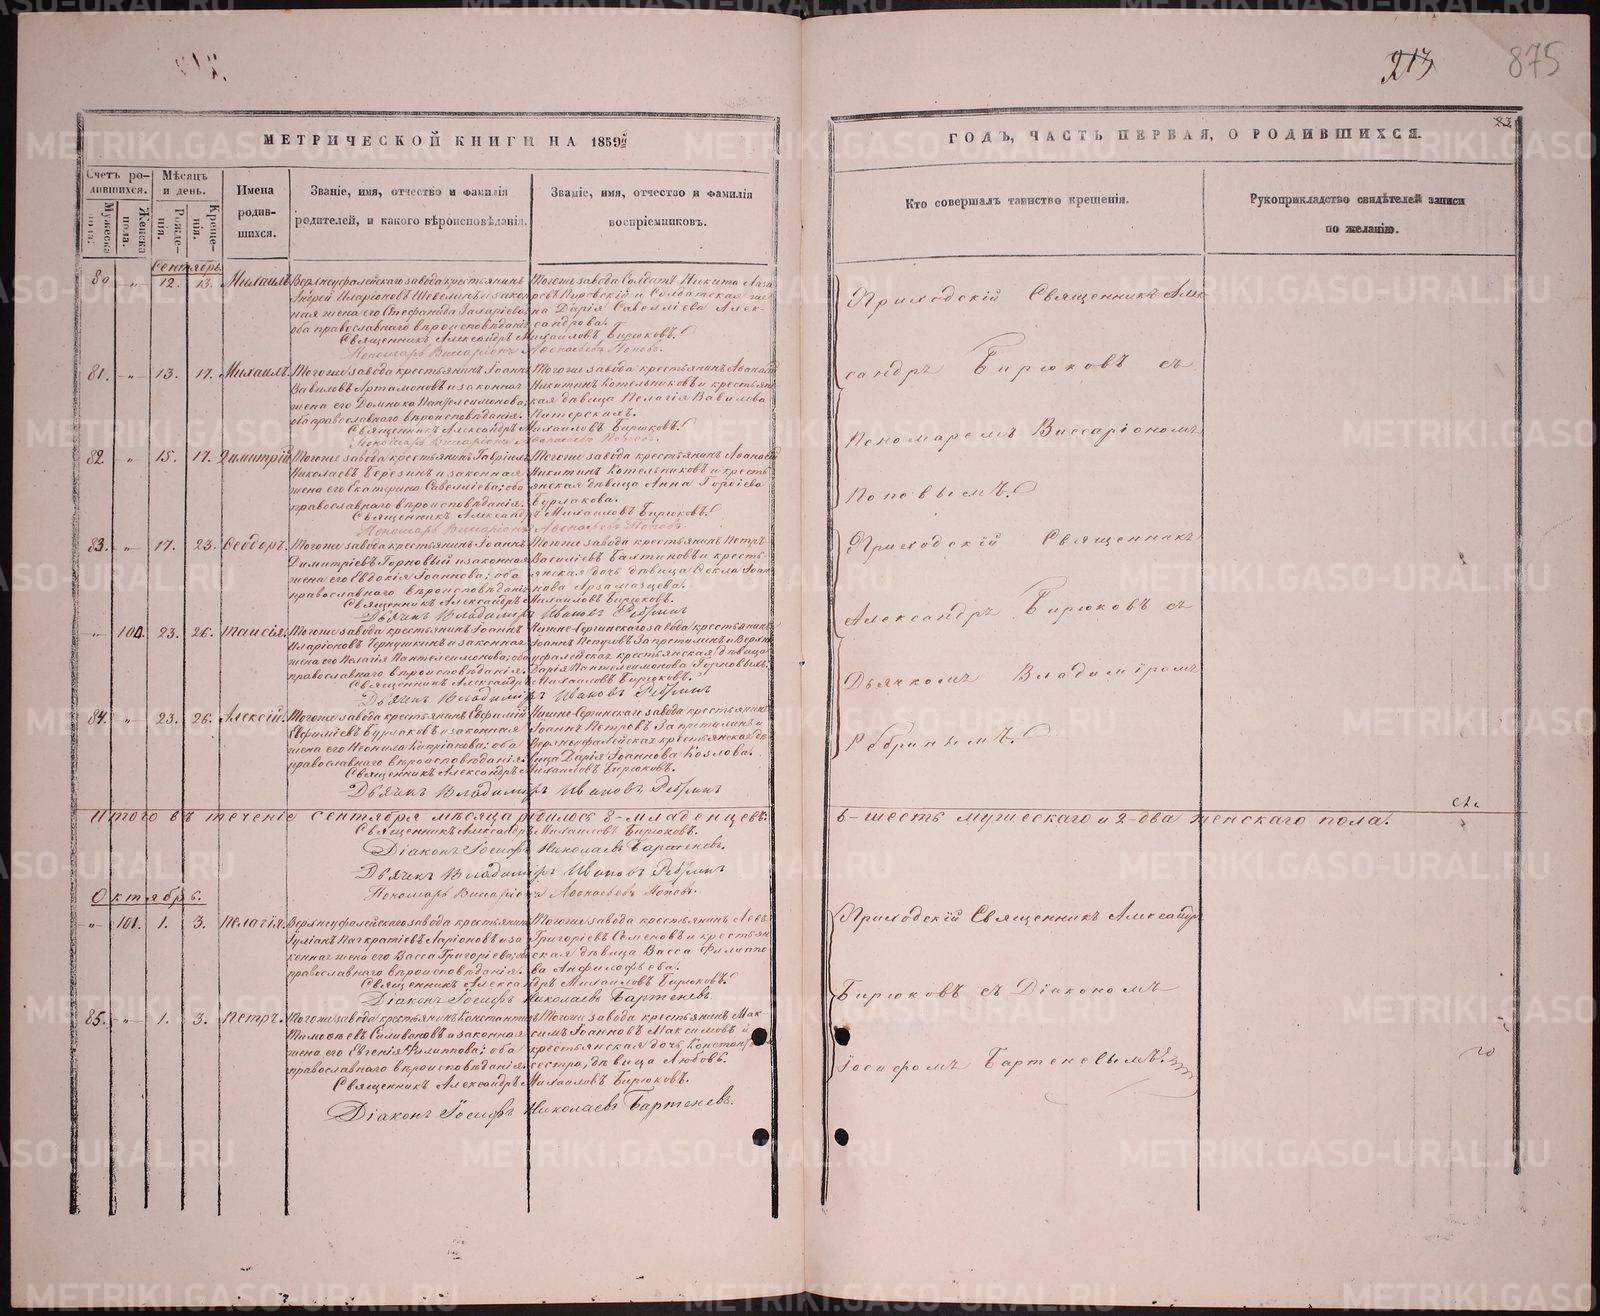 213
875
МЕТРИЧЕСКОЙ КНИГИ НА 1859
ГОДЪ, ЧАСТЬ ПЕРВАЯ, О РОДИВШИХСЯ.
Счетъ родившихся.
Мужеска пола.
Женска пола.
Мѣсяцъ и день.
Рожденія.
Крещенія.
Имена родившихся.
Званіе, имя, отчество и фамилія
родителей, и какого вѣроисповѣданія.
Званіе, имя, отчество и фамилія
воспріемниковъ.
Кто совершалъ таинство крещенія.
Рукоприкладство свидѣтелей записи
по желанію.
Сентябрь
80 " 12. 13. Михаилъ
Верхнеуфалейскаго завода крестьянинъ
Андрей Иларіоновъ Шевелинъ и закон
ная жена его Стефанида
оба православнаго вѣроисповѣданія
Тогоже завода Солдатъ Никита Лаза
ревъ и Солдатская же
на Дарія Савелліева Алек-
сандрова.
Священникъ Александръ Михаиловъ Бирюковъ.
Пономарь Виссаріонъ Аѳонасьевъ Поповъ.
81. " 13. 17. Михаилъ.
Тогоже завода крестьянинъ Іоаннъ
Вавиловъ Артамоновъ и законная
жена его Домника Пантелеимонова;
оба православнаго вѣроисповѣданія.
Тогоже завода крестьянинъ Аѳонасій
Никитинъ Котельниковъ и крестьян
кая дѣвица Пелагія Вавилова
Питерская.
Священникъ Александръ Михаиловъ Бирюковъ.
Пономарь Виссаріонъ Аѳонасьевъ Поповъ.
82 " 15. 17. Димитрій
Тогоже завода крестьянинъ Гавріилъ
Николаевъ Березинъ и законная
жена его Екатерина Савелліева; оба
православнаго вѣроисповѣданія.
Тогоже завода крестьянинъ Аѳонасій
Никитинъ Котельниковъ и кресть
янская дѣвица Анна Гордіева
Бурлакова.
Священникъ Александръ Михаиловъ Бирюковъ.
Пономарь Виссаріонъ Аѳонасьевъ Поповъ.
83. " 17. 23. Ѳеодоръ.
Тогоже завода крестьянинъ Іоаннъ
Димитріевъ Горновый и законная
жена его Евдокія Іоаннова; оба
православнаго вѣроисповѣданія
Тогоже завода крестьянинъ Петръ
Василіевъ Балтиновъ и кресть-
янская дочь дѣвица Ѳекла Іоан
нова Арзамазцева.
Священникъ Александръ Михаиловъ Бирюковъ.
Дьячекъ Владимиръ Ивановъ Ребринъ
" 100. 23. 26. Таисія.
Тогоже завода крестьянинъ Іоаннъ
Иларіоновъ Чернушкинъ и законная
жена его Пелагія Пантелеимонова; оба
православнаго вѣроисповѣданія.
Нижне-Сергинскаго завода крестьянинъ
Іоаннъ Петровъ Запретилинъ и Верхне
уфалейская крестьянская дѣвица
Дарія Пантелеимонова Горновыхъ.
Священникъ Александръ Михаиловъ Бирюковъ.
Дьячекъ Владимиръ Ивановъ Ребринъ
84. " 23. 26. Алексій.
Тогоже завода крестьянинъ Евфимій
Евфиміевъ Бурлаковъ и законная
жена его Неонила Кипріанова; оба
православнаго вѣроисповѣданія.
Нижне-Сергинскаго завода крестьянинъ
Іоаннъ Петровъ Запретилинъ и
Верхнеуфалейская крестьянская дѣ
вица Дарія Іоаннова Козлова.
Священникъ Александръ Михаиловъ Бирюковъ.
Дьячекъ Владимиръ Ивановъ Ребринъ
Итого въ теченіе сентября мѣсяца родилось 8-младенцевъ:
6-шесть мужескаго и 2-два женскаго пола.
Священникъ Александръ Михаиловъ Бирюковъ.
Діаконъ Іосифъ Николаевъ Бартеневъ.
Дьячекъ Владимиръ Ивановъ Ребринъ
Пономарь Виссаріонъ Аѳонасьевъ Поповъ.
Октябрь.
" 101. 1. 3. Пелагія.
Верхнеуфалейскаго завода крестьянинъ
Іуліанъ Панкратіевъ Ларіоновъ и за
конная жена его Васса Григоріева; оба
православнаго вѣроисповѣданія.
Тогоже завода крестьянинъ Левъ
Григоріевъ Семеновъ и крестьян
ская дѣвица Васса Филиппо
ва Анфилофьева.
Священникъ Александръ Михаиловъ Бирюковъ.
Діаконъ Іосифъ Николаевъ Бартеневъ
85. " 1. 3. Петръ.
Тогоже завода крестьянинъ Константинъ
Тимоѳеевъ Силивановъ и законная
жена его Евгенія Филиппова; оба
православнаго вѣроисповѣданія.
Тогоже завода крестьянинъ Мак-
симъ Іоанновъ Максимовъ и
крестьянская дочь,
сестра, дѣвица Любовь.
Священникъ Александръ Михаиловъ Бирюковъ.
Діаконъ Іосифъ Николаевъ Бартеневъ.
Приходскій Священникъ Алек
сандръ Бирюковъ съ
Пономаремъ Виссаріономъ
Поповымъ.
Приходскій Священникъ
Александръ Бирюковъ съ
Дьячкомъ Владиміромъ
Ребринымъ.
Приходскій Священникъ Александръ
Бирюковъ съ Діакономъ
Іосифомъ Бартеневымъ.
METRIKI.GASO-URAL.RU